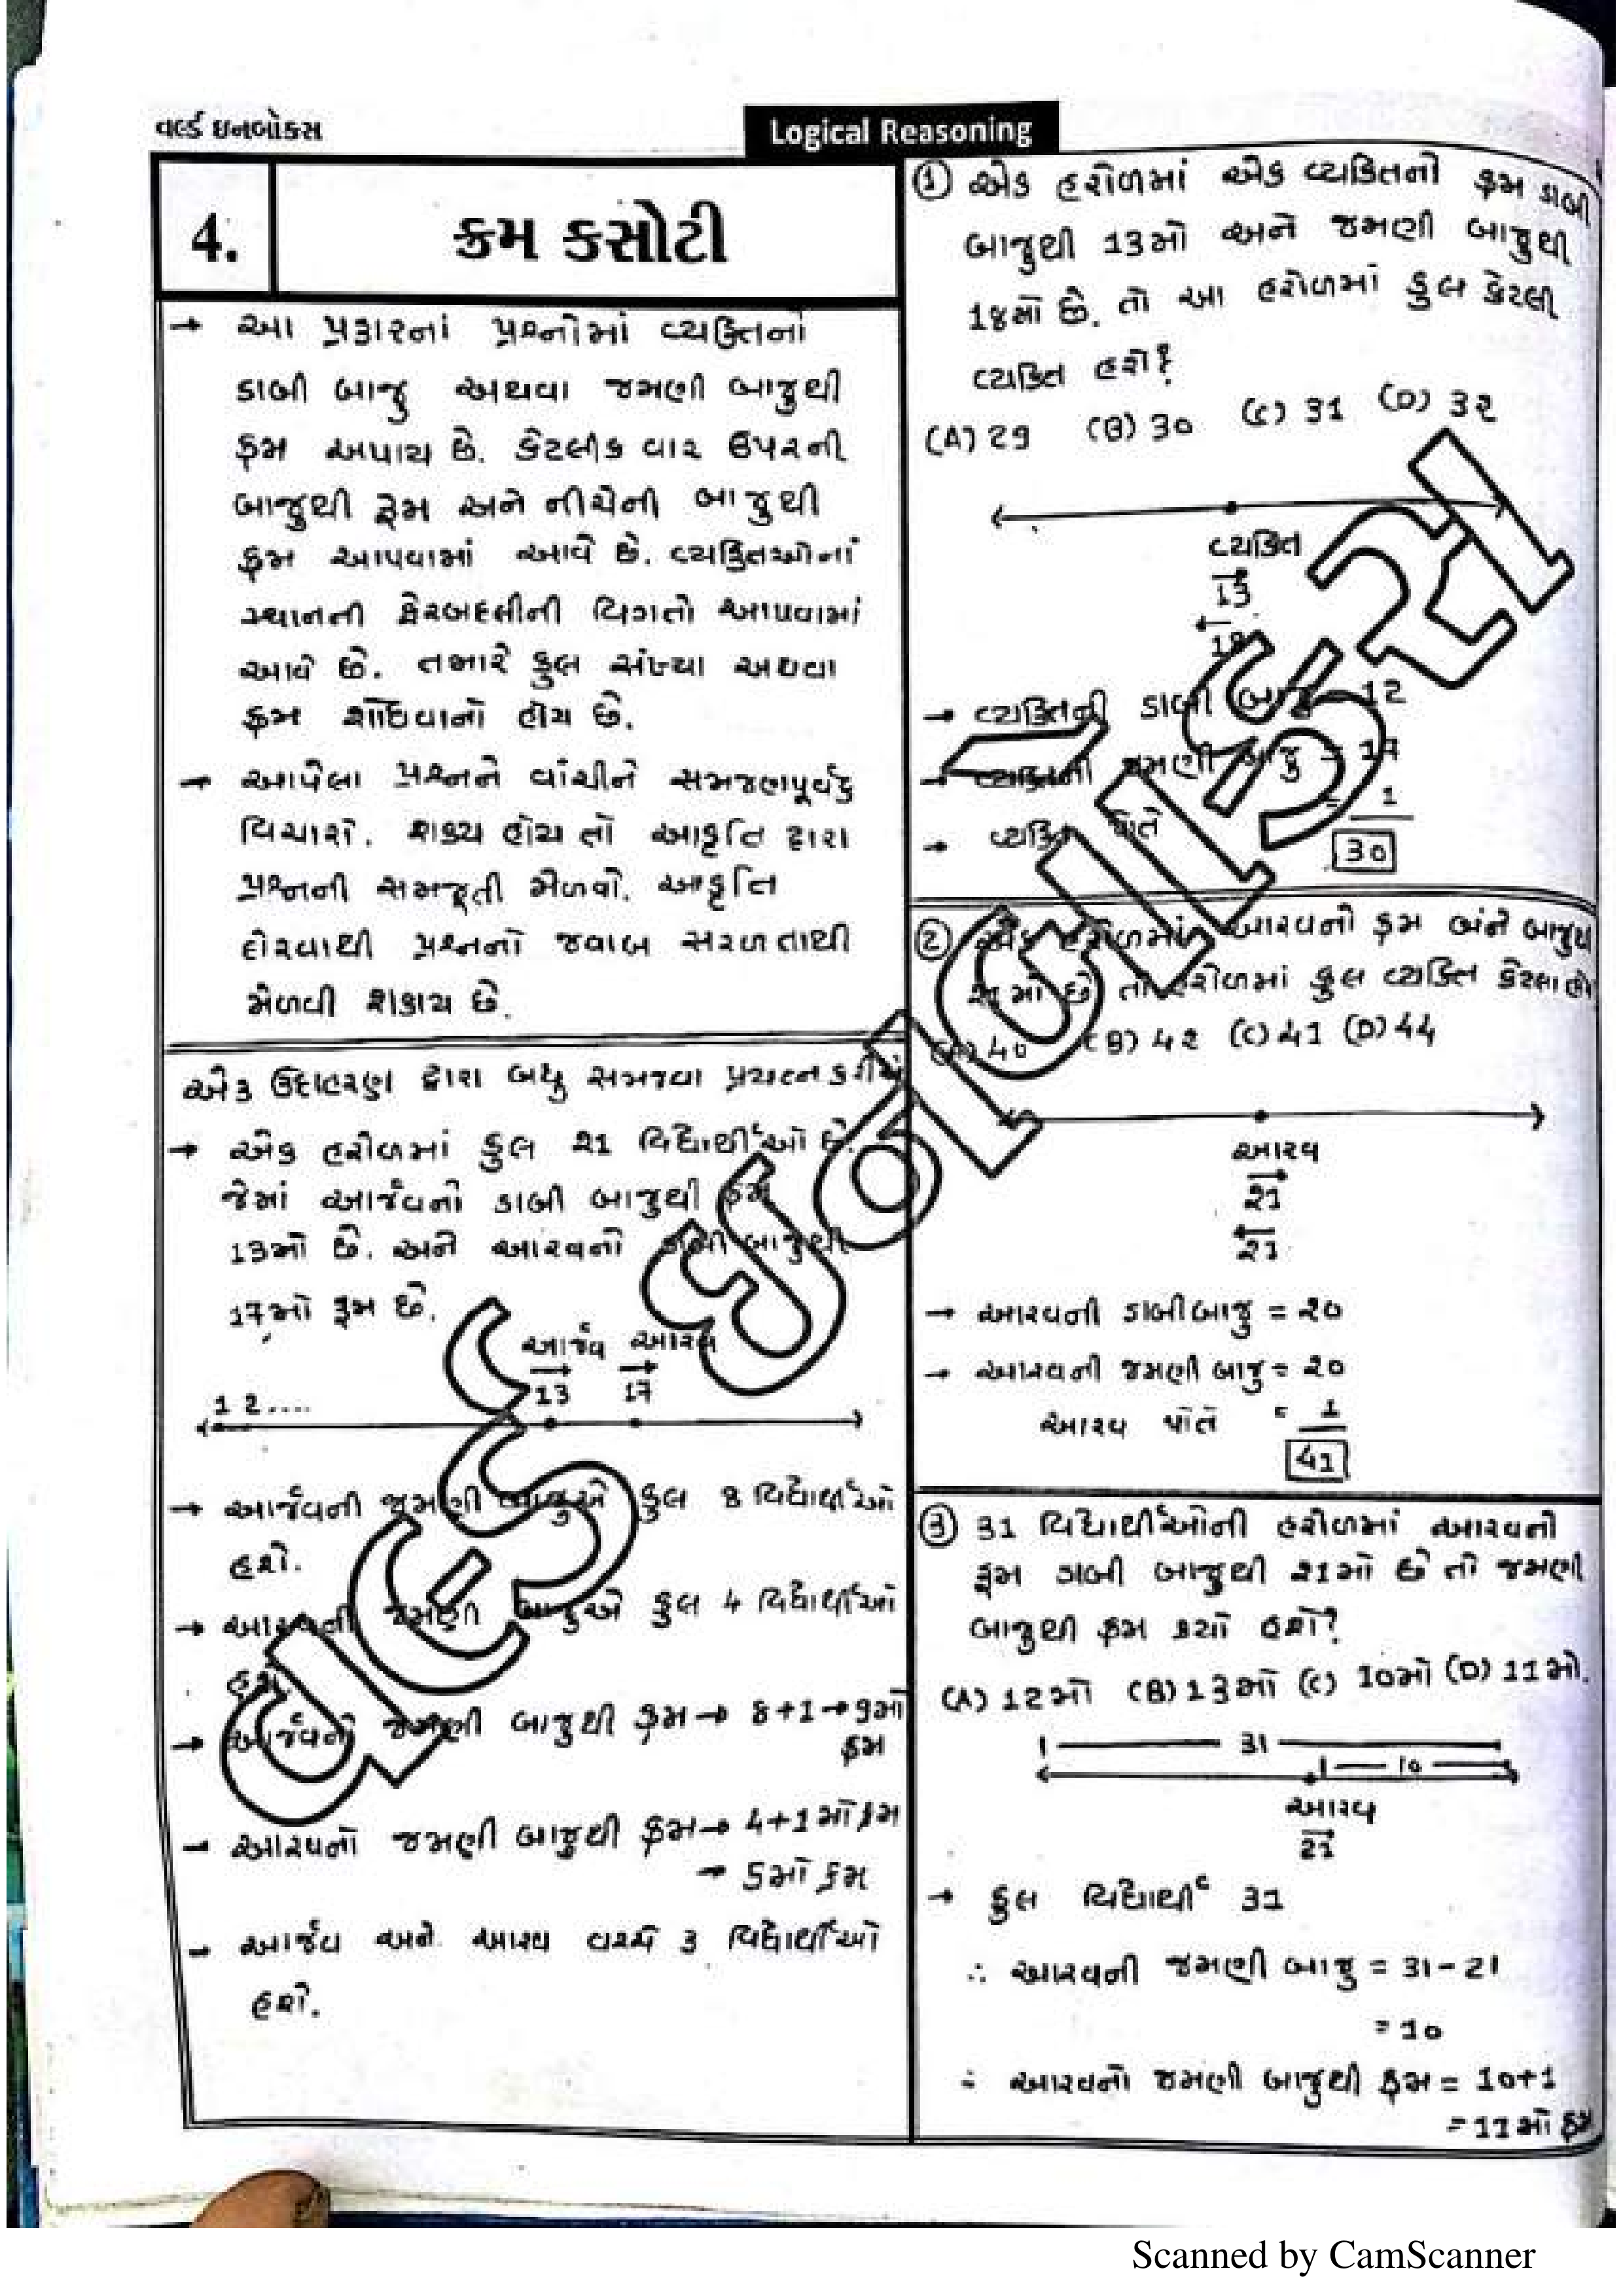 વર્લ્ડ ઇનબોક્સ
Logical Reasoning
4.
ક્રમ કસોટી
→ આ પ્રકારનાં પ્રશ્નોમાં વ્યક્તિનો
ડાબી બાજુ અથવા જમણી બાજુથી
ક્રમ અપાય છે. કેટલીક વાર ઉપરની
બાજુથી ક્રમ અને નીચેની બાજુથી
ક્રમ આપવામાં આવે છે. વ્યક્તિઓનાં
સ્થાનની ફેરબદલીની વિગતો આપવામાં
આવે છે. તમારે કુલ સંખ્યા અથવા
ક્રમ શોધવાનો હોય છે.
→ આપેલા પ્રશ્નને વાંચીને સમજણપૂર્વક
વિચારો. શક્ય હોય તો આકૃતિ દ્વારા
પ્રશ્નની સમજૂતી મેળવો. આકૃતિ
દોરવાથી પ્રશ્નનો જવાબ સરળતાથી
મેળવી શકાય છે.
એક ઉદાહરણ દ્વારા બધુ સમજવા પ્રયત્ન કરીએ
→ એક હરોળમાં કુલ 21 વિદ્યાર્થીઓ છે.
જેમાં આર્જવનો ડાબી બાજુથી ક્રમ
13મો છે. અને આરવનો ડાબી બાજુથી
17મો ક્રમ છે.
આર્જવ આરવ
13 17
1 2....
→ આર્જવની જમણી બાજુએ કુલ 8 વિદ્યાર્થીઓ
હશે.
→ આરવની જમણી બાજુએ કુલ 4 વિદ્યાર્થીઓ
હશે.
→ આર્જવનો જમણી બાજુથી ક્રમ → 8+1 → 9મો
ક્રમ
→ આરવનો જમણી બાજુથી ક્રમ → 4+1મો ક્રમ
→ 5મો ક્રમ
→ આર્જવ અને આરવ વચ્ચે 3 વિદ્યાર્થીઓ
હશે.
① એક હરોળમાં એક વ્યક્તિનો ક્રમ ડાબી
બાજુથી 13મો અને જમણી બાજુથી
18મો છે. તો આ હરોળમાં કુલ કેટલી
વ્યક્તિ હશે?
(A) 29 (B) 30 (C) 31 (D) 32
વ્યક્તિ
13
18
→ વ્યક્તિની ડાબી બાજુ = 12
→ વ્યક્તિની જમણી બાજુ = 17
→ વ્યક્તિ પોતે = 1
30
② એક હરોળમાં આરવનો ક્રમ બંને બાજુથી
21મો છે તો હરોળમાં કુલ વ્યક્તિ કેટલા
(A) 40 (B) 42 (C) 41 (D) 44
આરવ
21
21
→ આરવની ડાબી બાજુ = 20
→ આરવની જમણી બાજુ = 20
આરવ પોતે = 1
41
③ 31 વિદ્યાર્થીઓની હરોળમાં આરવનો
ક્રમ ડાબી બાજુથી 21મો છે તો જમણી
બાજુથી ક્રમ કયો હશે?
(A) 12મો (B) 13મો (C) 10મો (D) 11મો.
31
10
આરવ
21
→ કુલ વિદ્યાર્થી 31
∴ આરવની જમણી બાજુ = 31-21
= 10
∴ આરવનો જમણી બાજુથી ક્રમ = 10+1
= 11મો ક્રમ
Scanned by CamScanner